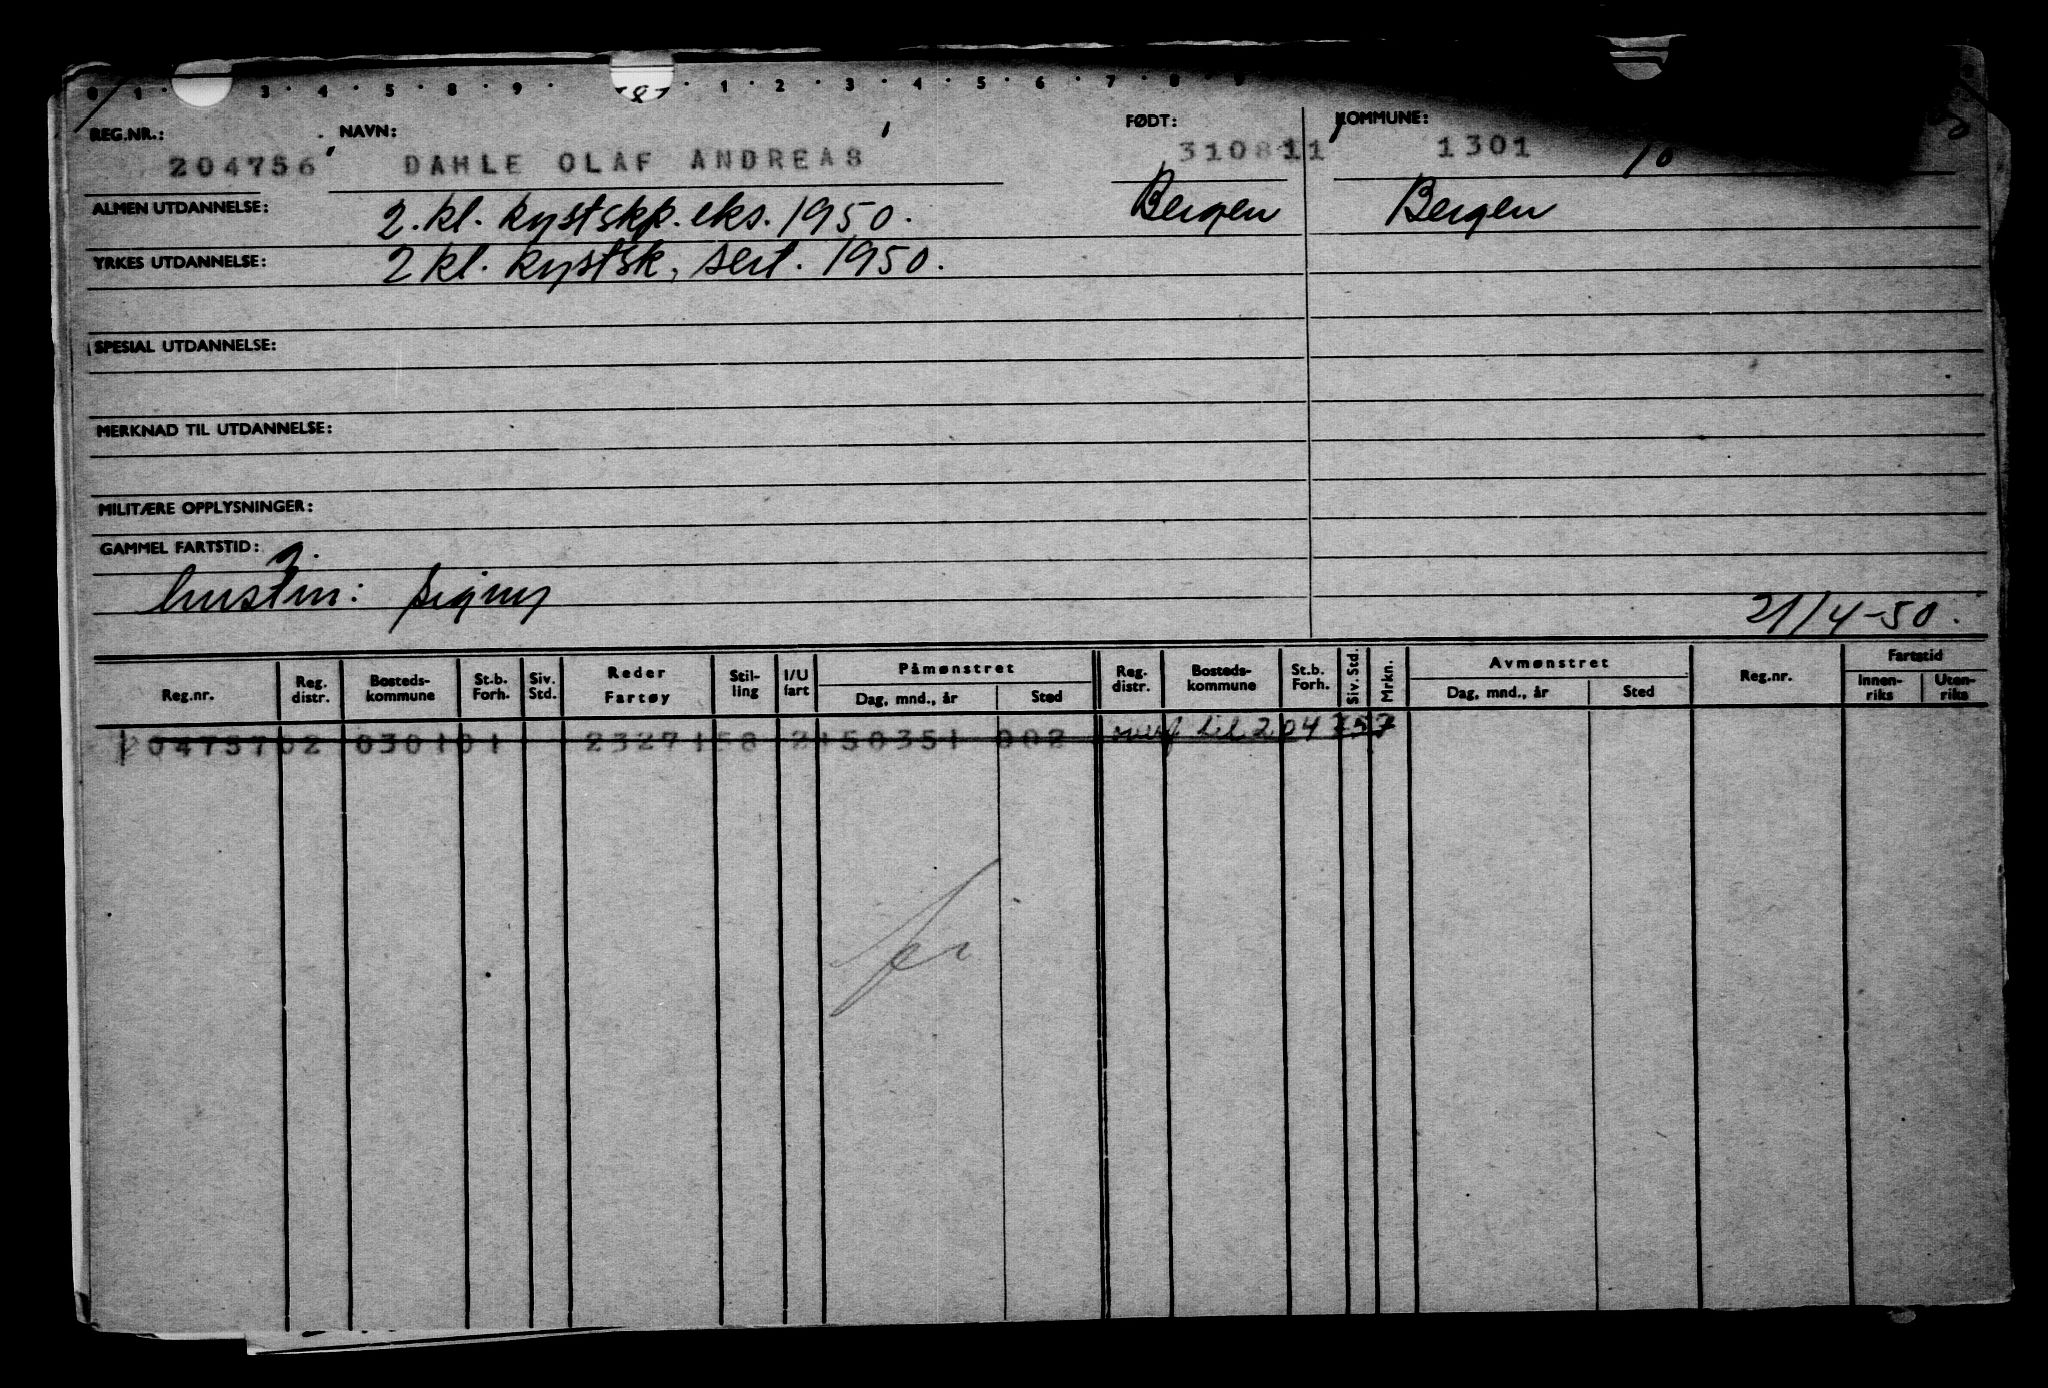 0 1 3 4 5 8 9 1 2 3 4 5 6 7 8 9
REG.NR.: NAVN: FØDT: KOMMUNE:
204756 DAHLE OLAF ANDREAS 310811 1301
ALMEN UTDANNELSE: 2. kl. kystskp. eks. 1950. Bergen Bergen
YRKES UTDANNELSE: 2 kl. kystsk. sert. 1950.
SPESIAL UTDANNELSE:
MERKNAD TIL UTDANNELSE:
MILITÆRE OPPLYSNINGER:
GAMMEL FARTSTID: g.
hustru: Signy
21/4-50.
Reg.nr. Reg. distr. Bosteds-kommune St.b. Forh. Siv. Std. Reder Fartøy Stil-ling I/U fart Påmønstret Dag, mnd., år Sted Reg. distr. Bosteds-kommune St.b. Forh. Siv. Std. Mrkn. Avmønstret Dag, mnd., år Sted Reg.nr. Fartstid Innen-riks Uten-riks
204757 02 0301 01 23271 58 2 150351 002 til 204757